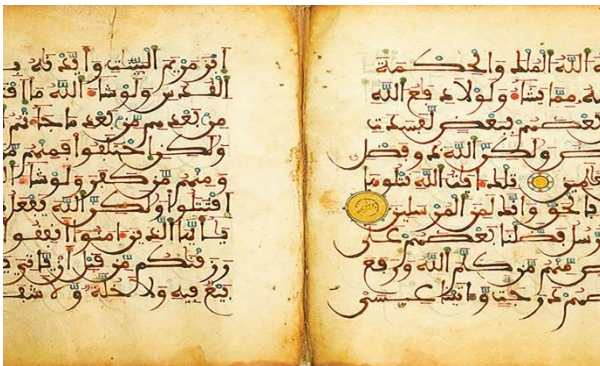 الله الملك والحكمة
مما يشاء ولولا دفع الله
بعضهم ببعض لفسدت
ولكن الله ذو فضل
تلك ءايت الله نتلوها
بالحق وإنك لمن المرسلين
فضلنا بعضهم على
منهم من كلم الله ورفع
درجت وءاتينا عيسى
ابن مريم البينت وأيدنه
القدس ولو شاء الله ما
من بعدهم من بعد ما جاءتهم
ولكن اختلفوا فمنهم
ومنهم من كفر ولو شاء الله
اقتتلوا ولكن الله يفعل
يأيها الذين ءامنوا أنفقوا
رزقنكم من قبل أن ياتي
بيع فيه ولا خلة ولا